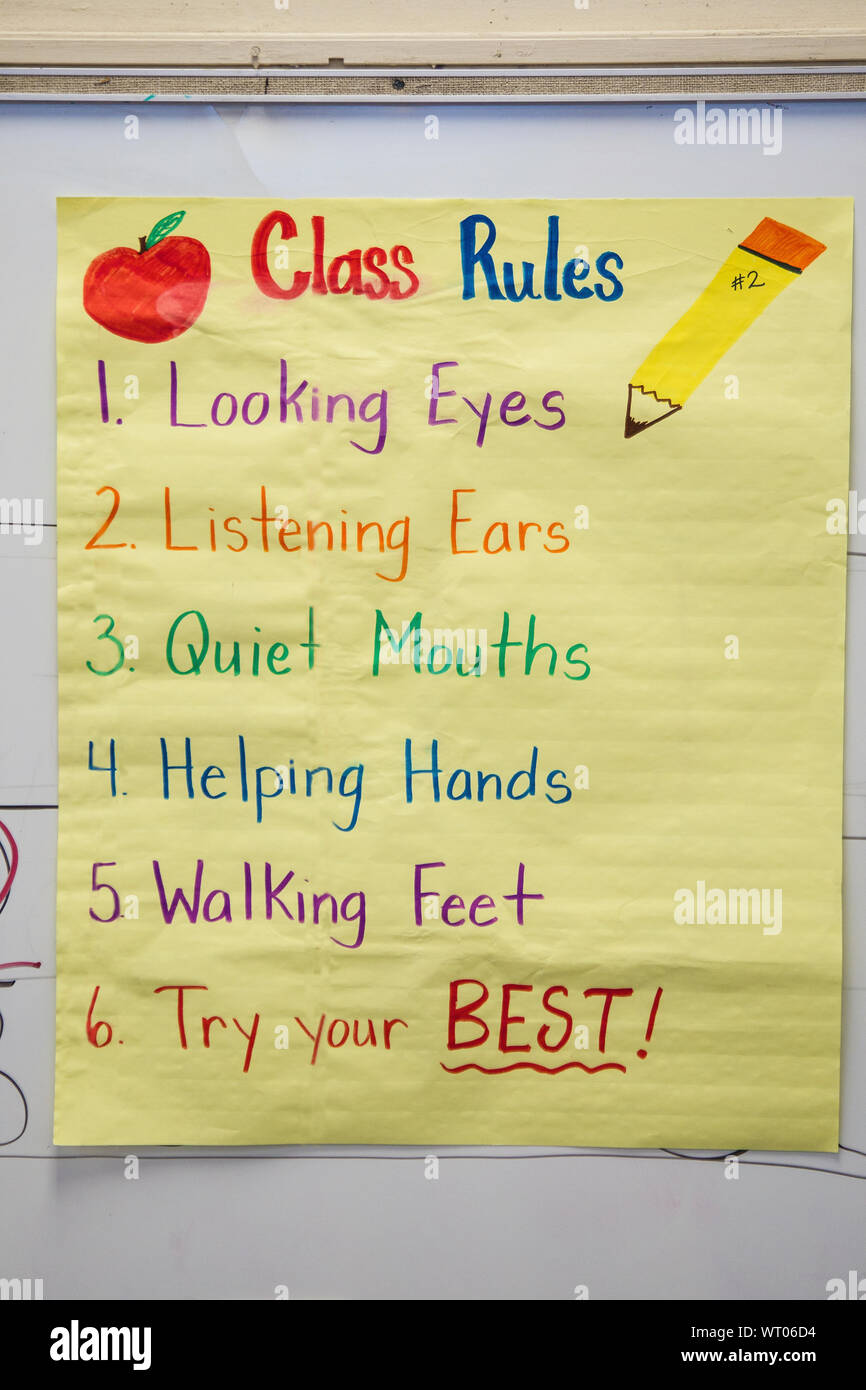 Class Rules
#2
1. Looking Eyes
2. Listening Ears
3. Quiet Mouths
4. Helping Hands
5. Walking Feet
6. Try your BEST!
alamy
alamy
Image ID: WT06D4
www.alamy.com